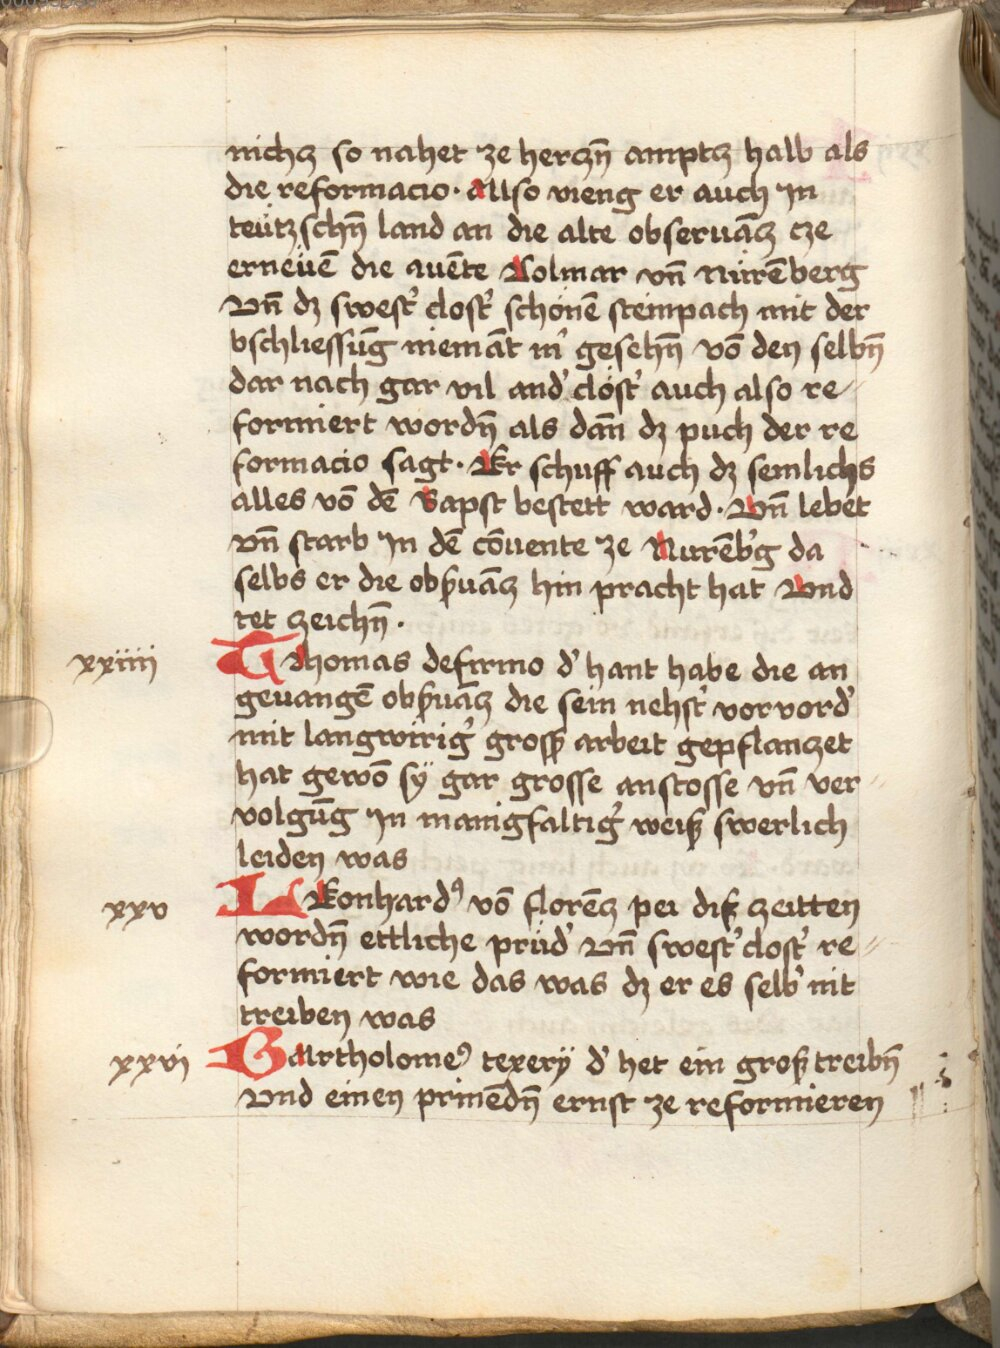 nichcz so nahet ze herczn̄ amptcz halb als
die reformacio. Allso vieng er auch in
teützschn̄ land an die alte obseruācz cze
ernevē die auēte Kolmar vn̄ nürēberg
Vn̄ dz swest' clost' schonē steinpach mit der
bschliessūg niemāt in' gesehn̄ vō den selbn̄
dar nach gar vil and' clöst' auch also re//
formiert wordn̄ als dān dz puch der re
formacio sagt. Er schuff auch dz semlichs
alles vō dē Bapst bestett ward. Vn̄ lebet
vn̄ starb in dē cōuente ze Nurēb'g da
selbs er die obs̄uācz hin pracht hat Vnd
tet zeichn̄.
xxiiii Thomas de firmo d' hant habe die an
geuangē obs̄uācz die sein nehst' vorvord'
mit langwirig' gross̄ arbeit gepflanczet
hat gewō sÿ gar grosse anstosse vn̄ ver//
volgūg in manigfaltig' weiß swerlich
leiden was
xxv LEonhard9 vō florēcz pei diß zeitten
wordn̄ ettliche prüd' Vn̄ swest' clost' re//
formiert wie das was dz er es selb' nit
treiben was
xxvi Bartholome9 texerÿ d' het ein groß treibn̄
Vnd einen prinēdn̄ ernst ze reformieren